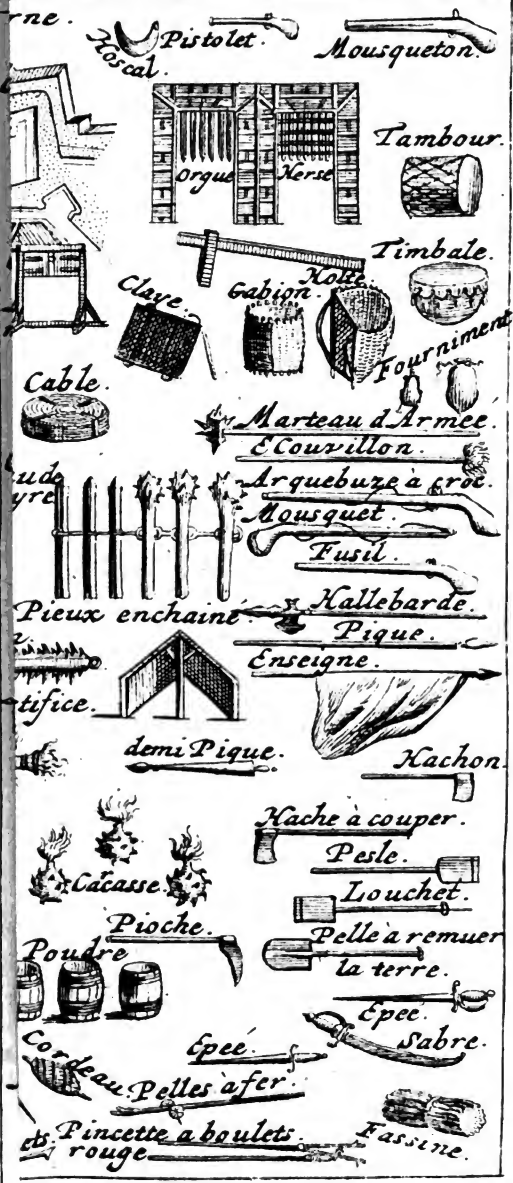 rne.
Hoscal.
Pistolet.
Mousqueton.
Orgue
Herse
Tambour.
Timbale.
Claye.
Gabion.
Hotte
Fourniment
Cable.
Marteau d'Armee.
Ecouvillon.
Arquebuze à croc.
Mousquet.
Fusil.
Pieux enchainé
Hallebarde.
Pique.
Enseigne.
tifice.
demi Pique.
Hachon.
Hache à couper.
Pesle.
Carcasse.
Louchet.
Pioche.
Pelle à remuer
la terre.
Poudre
Epee.
Sabre.
Epeé.
Cordeau.
Pelles à fer.
ets.
Pincette a boulets
rouge
Fassine.